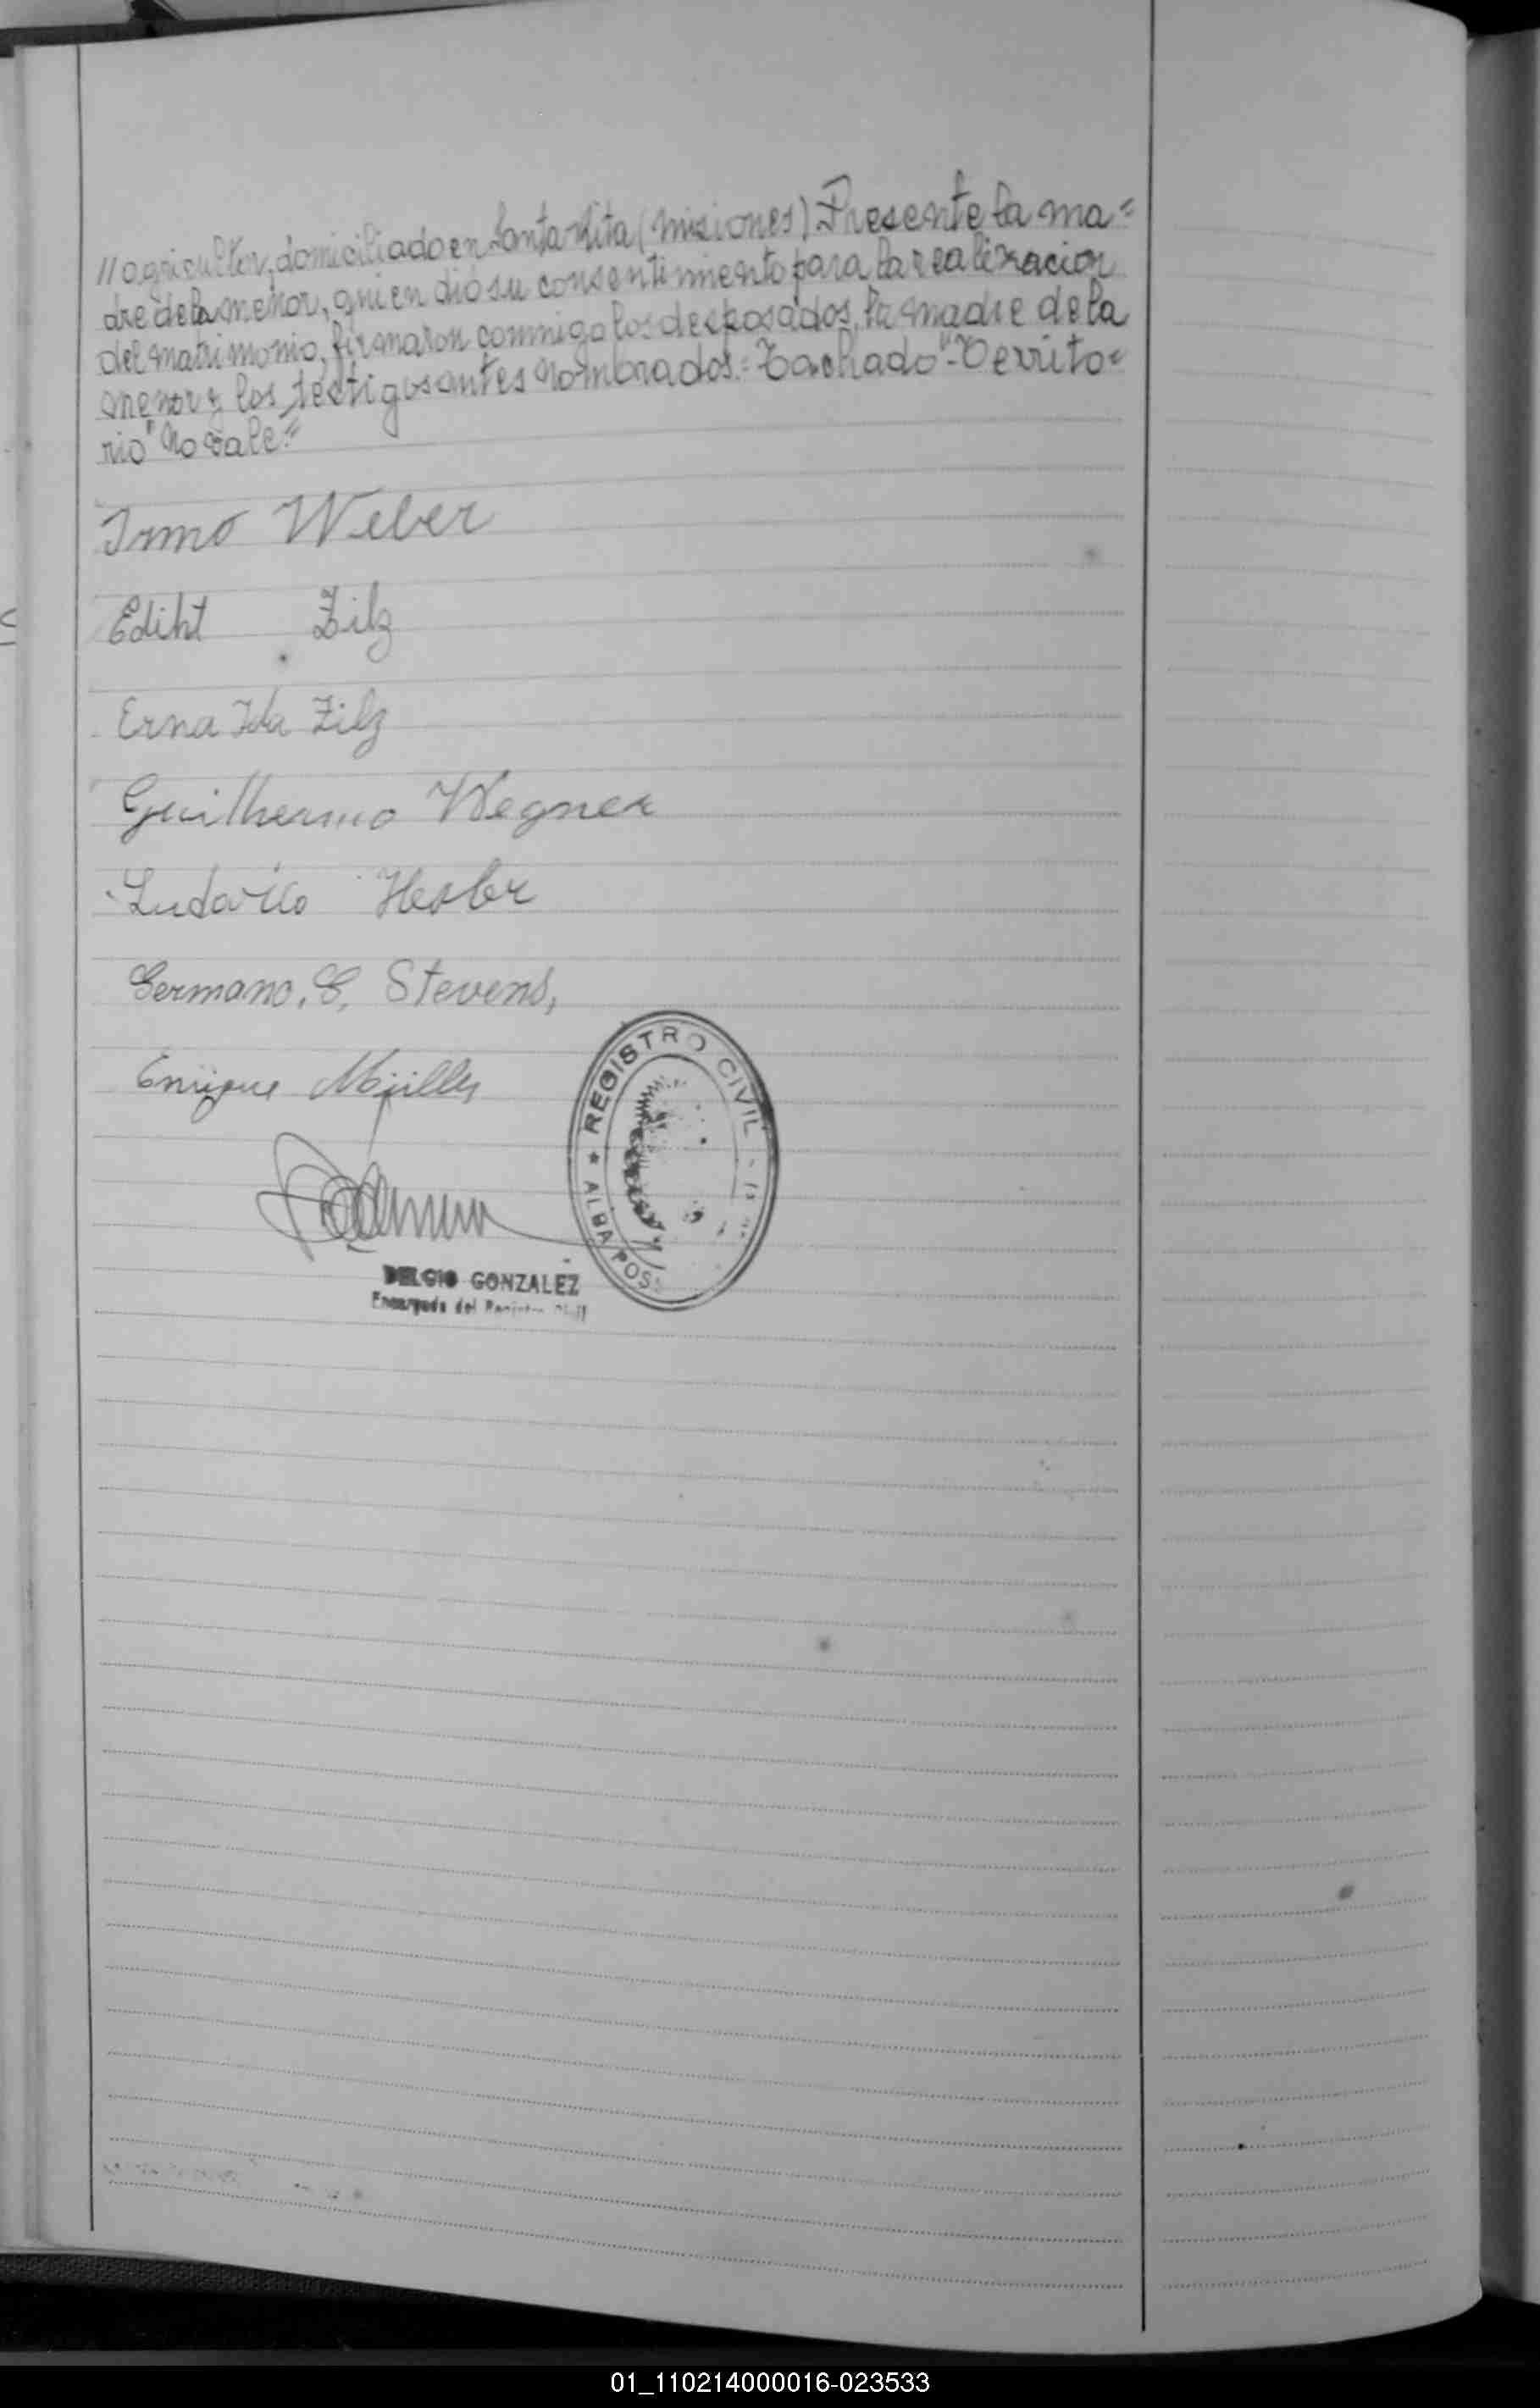 // agricultor, domiciliado en Santa Rita (Misiones) Presente la ma=
dre de la menor, quien dió su consentimiento para la realizacion
del matrimonio, firmaron conmigo los desposados, la madre de la
menor y los testigos antes nombrados.= Tachado "-Territo=
rio" No vale.=
Irmo Weber
Ediht Zilz
Erna Ida Zilz
Guilhermo Wegner
Ludovico
Germano. G. Stevens,
Enrique Müller
★ REGISTRO CIVIL
ALBA POS
DELCIO GONZALEZ
Encargado del Registro Civil
01_110214000016-023533